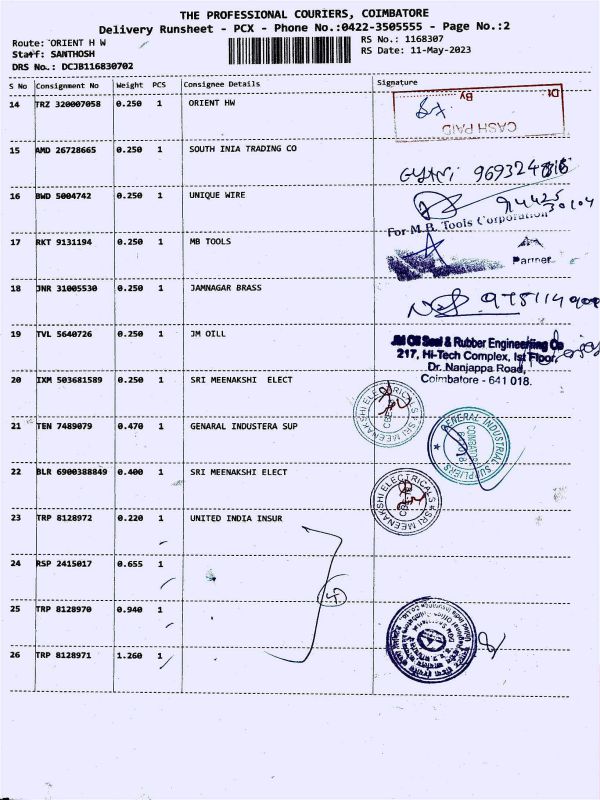 THE PROFESSIONAL COURIERS, COIMBATORE
Delivery Runsheet - PCX - Phone No.:0422-3505555 - Page No.:2
Route: ORIENT H W RS No.: 1168307
Staff: SANTHOSH RS Date: 11-May-2023
DRS No.: DCJB116830702
S No Consignment No Weight PCS Consignee Details Signature
14 TRZ 320007058 0.250 1 ORIENT HW
Dt: By:
CASH PAID
15 AMD 26728665 0.250 1 SOUTH INIA TRADING CO
16 BWD 5004742 0.250 1 UNIQUE WIRE
For M.B. Tools Corporation
17 RKT 9131194 0.250 1 MB TOOLS
Partner
18 JNR 31005530 0.250 1 JAMNAGAR BRASS
19 TVL 5640726 0.250 1 JM OILL
JM Oil Seal & Rubber Engineering Co
217, Hi-Tech Complex, Ist Floor,
Dr. Nanjappa Road,
Coimbatore - 641 018.
20 IXM 503681589 0.250 1 SRI MEENAKSHI ELECT
SRI MEENAKSHI ELECTRICALS
21 TEN 7489079 0.470 1 GENARAL INDUSTERA SUP
GENERAL INDUSTRIAL SUPPLIERS
COIMBATORE
22 BLR 6900388849 0.400 1 SRI MEENAKSHI ELECT
SRI MEENAKSHI ELECTRICALS
23 TRP 8128972 0.220 1 UNITED INDIA INSUR
24 RSP 2415017 0.655 1
4
25 TRP 8128970 0.940 1
26 TRP 8128971 1.260 1